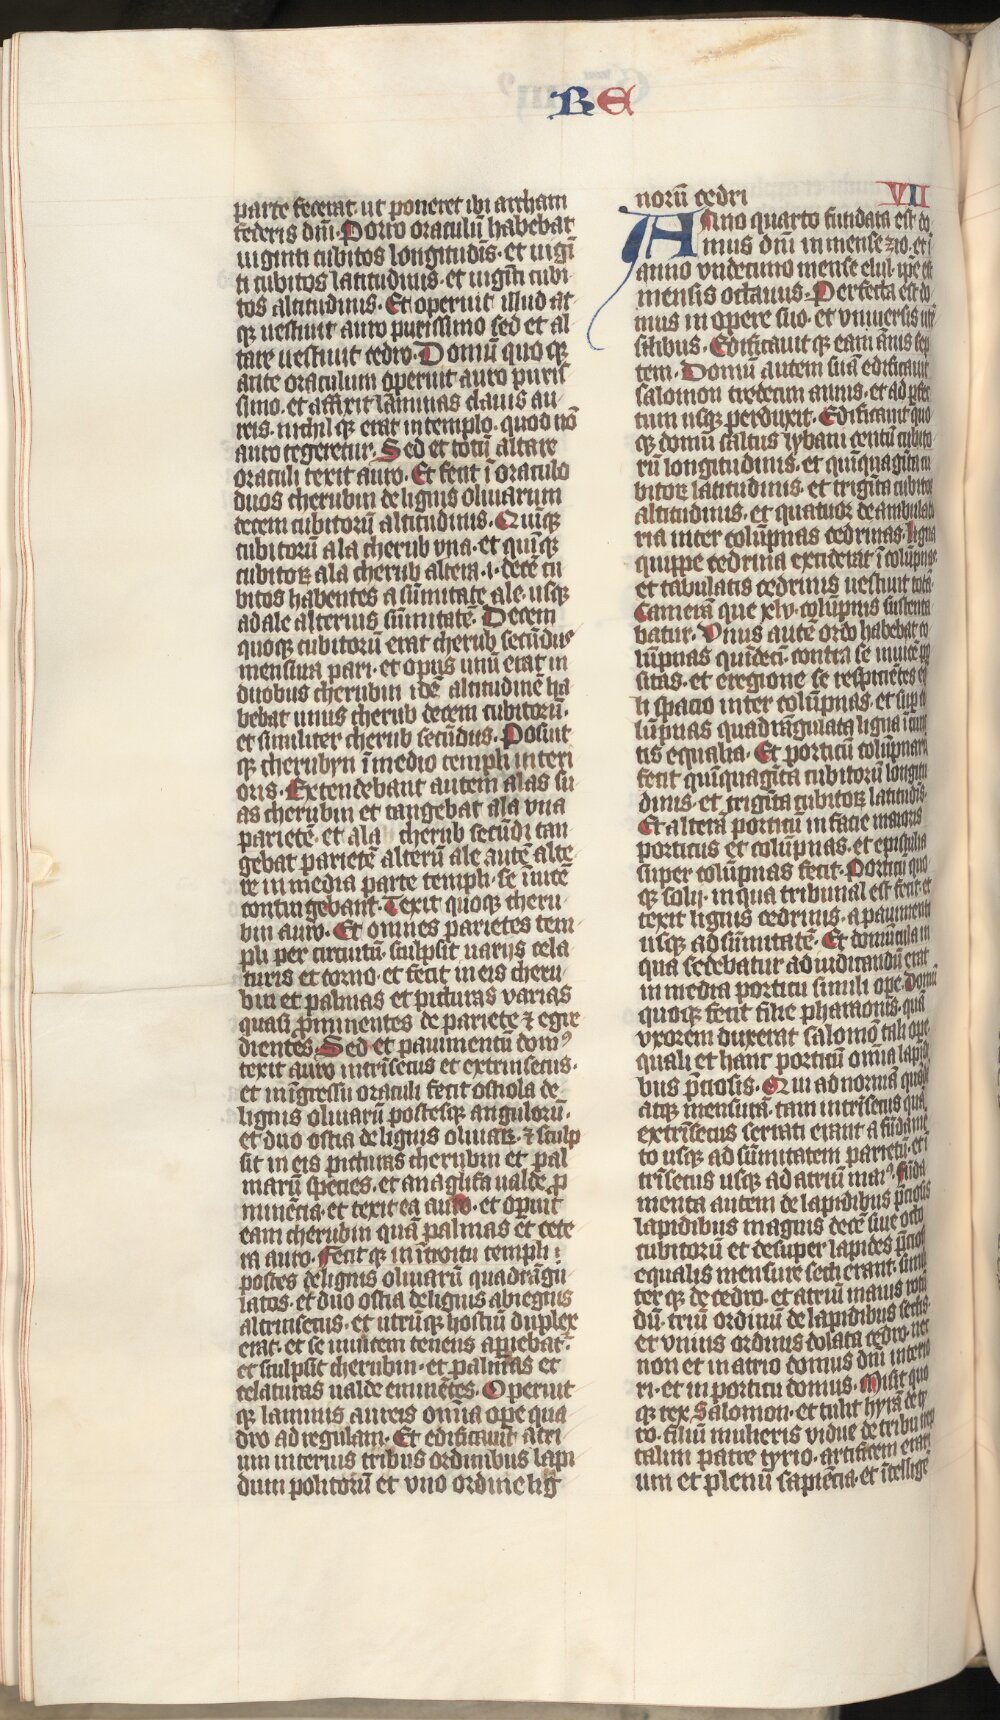 BE
parte fecerat ut poneret ibi archam
federis dm̄i. Porro oraculū habebat
uiginti cubitos longitudīs. et uigī
ti cubitos latitudinis. et uigīti cubi
tos altitudinis. Et operuit illud at
qꝫ uestiuit auro purissimo sed et al
tare uestiuit cedro. Domū quoqꝫ
ante oraculum operuit auro puris
simo. et affixit laminas clauis au
reis. nichilqꝫ erat in templo. quod nō
auro tegeretur. Sed et totū altare
oraculi texit auro. Et fecit ī oraculo
duos cherubin de lignis oliuarum
decem cubitorū altitudinis. Quīqꝫ
cubitorū ala cherub vna. et quīqꝫ
cubitoꝝ ala cherub altera .i. decē cu
bitos habentes a sūmitate ale. usqꝫ
ad ale alterius sūmitatē. Decem
quoqꝫ cubitorū erat cherub secūdus
mensura pari. et opus unū erat in
duobus cherubin idē altitudinē ha
bebat unus cherub decem cubitorū.
et similiter cherub secūdus. Posuit
qꝫ cherubyn ī medio templi interi
oris. Extendebant autem alas su
as cherubin et tangebat ala vna
parietē. et ala cherub secūdi tan
gebat parietē alterū ale autē alte
re in media parte templi. se īuicē
contingebant. Texit quoqꝫ cheru
bin auro. Et omnes parietes tem
pli per circuitū. sculpsit uarijs cela
turis et torno. et fecit in eis cheru
bin et palmas et picturas varias
quasi p̄minentes de pariete ⁊ egre
dientes. Sed et pauimentū domꝰ
texit auro intrīsecus et extrinsecus.
et in īgressu oraculi fecit ostiola de
lignis oliuarū postesqꝫ angulorū.
et duo ostia de lignis oliuaꝝ. ⁊ sculp
sit in eis picturas cherubin et pal
marū species. et anaglifa ualde ꝓ
minēcia. et texit ea auro. et opuit
eam cherubin quā palmas et cete
ra auro. Fecitqꝫ in ītroitu templi
postes de lignis oliuarū quadrāgu
latos. et duo ostia de lignis abiegnis
altrinsecus. et utrūqꝫ hostiū duplex
erat. et se inuicem tenens apiebat.
et sculpsit cherubin. et palmas et
celaturas ualde eminētes. Operuit
qꝫ laminis aureis omīa ope qua
dro ad regulam. Et edificauit atri
um interius tribus ordinibus lapi
dum politorū et vno ordine lig
norū cedri VII
Anno quarto fundata est do
mus dm̄i in mense zio. et ī
anno vndecimo mense ebul. ip̄e est
mensis octauus. Perfecta est do
mus in opere suo. et vniuersis vtē
silibus. Edificauitqꝫ eam ānis sep
tem. Domū autem suā edificauit
salomon tredecim annis. et ad pfec
tum usqꝫ perduxit. Edificauit quo
qꝫ domū saltus lybani centū cubito
rū longitudinis. et quīquagīta cu
bitoꝝ latitudinis. et trigīta cubitoꝝ
altitudinis. et quatuor deambulato
ria inter colūpnas cedrinas. ligna
quippe cedrina exciderat ī colūpnas
et tabulatis cedrinis uestiuit totā
Camerā que xlv. colūpnis sustenta
batur. Vnus autē ordo habebat co
lūpnas quīdecī. contra se inuicē po
sitas. et e regione se respiciētes eq̄
li spacio inter colūpnas. et sup co
lūpnas quadrāgulata ligna ī cunc
tis equalia. Et porticū colūpnarū
fecit quīquagīta cubitorū longitu
dinis. et trigīta cubitoꝝ latitudīs.
Et alterā porticū in facie maioris
porticus et colūpnas. et epistilia
super colūpnas fecit. Porticū quo
qꝫ solij. in qua tribunal est fecit. et
texit lignis cedrinis. a pauimento
usqꝫ ad sūmitatē. Et domūcula in
qua sedebatur ad iudicandū erat
in media porticu simili ope. Domū
quoqꝫ fecit filie pharaonis. quā
vxorem duxerat salomō tali ope.
quali et hanc porticū omīa lapidi
bus p̄ciosis. Qui ad normā quādā
atqꝫ mensurā. tam intrīsecus quā
extrīsecus serrati erant a fūdamē
to usqꝫ ad sūmitatem parietū. et ī
trīsecus usqꝫ ad atriū maiꝰ. Fūda
menta autem de lapidibus p̄ciosis
lapidibus magnis decē siue octo
cubitorū et desuper lapides p̄ciosi
equalis mensure secti erant. simili
terqꝫ de cedro. et atriū maius rotū
dū. triū ordinū de lapidibus sectis.
et vnius ordinis dolata cedro. nec
non et in atrio domus dm̄i interio
ri. et in porticu domus. Misit quo
qꝫ rex Salomon. et tulit hyrā de ty
ro. filiū mulieris vidue de tribu nep
talim patre tyrio. artificem erari
um et plenū sapiēcia. et ītelligē